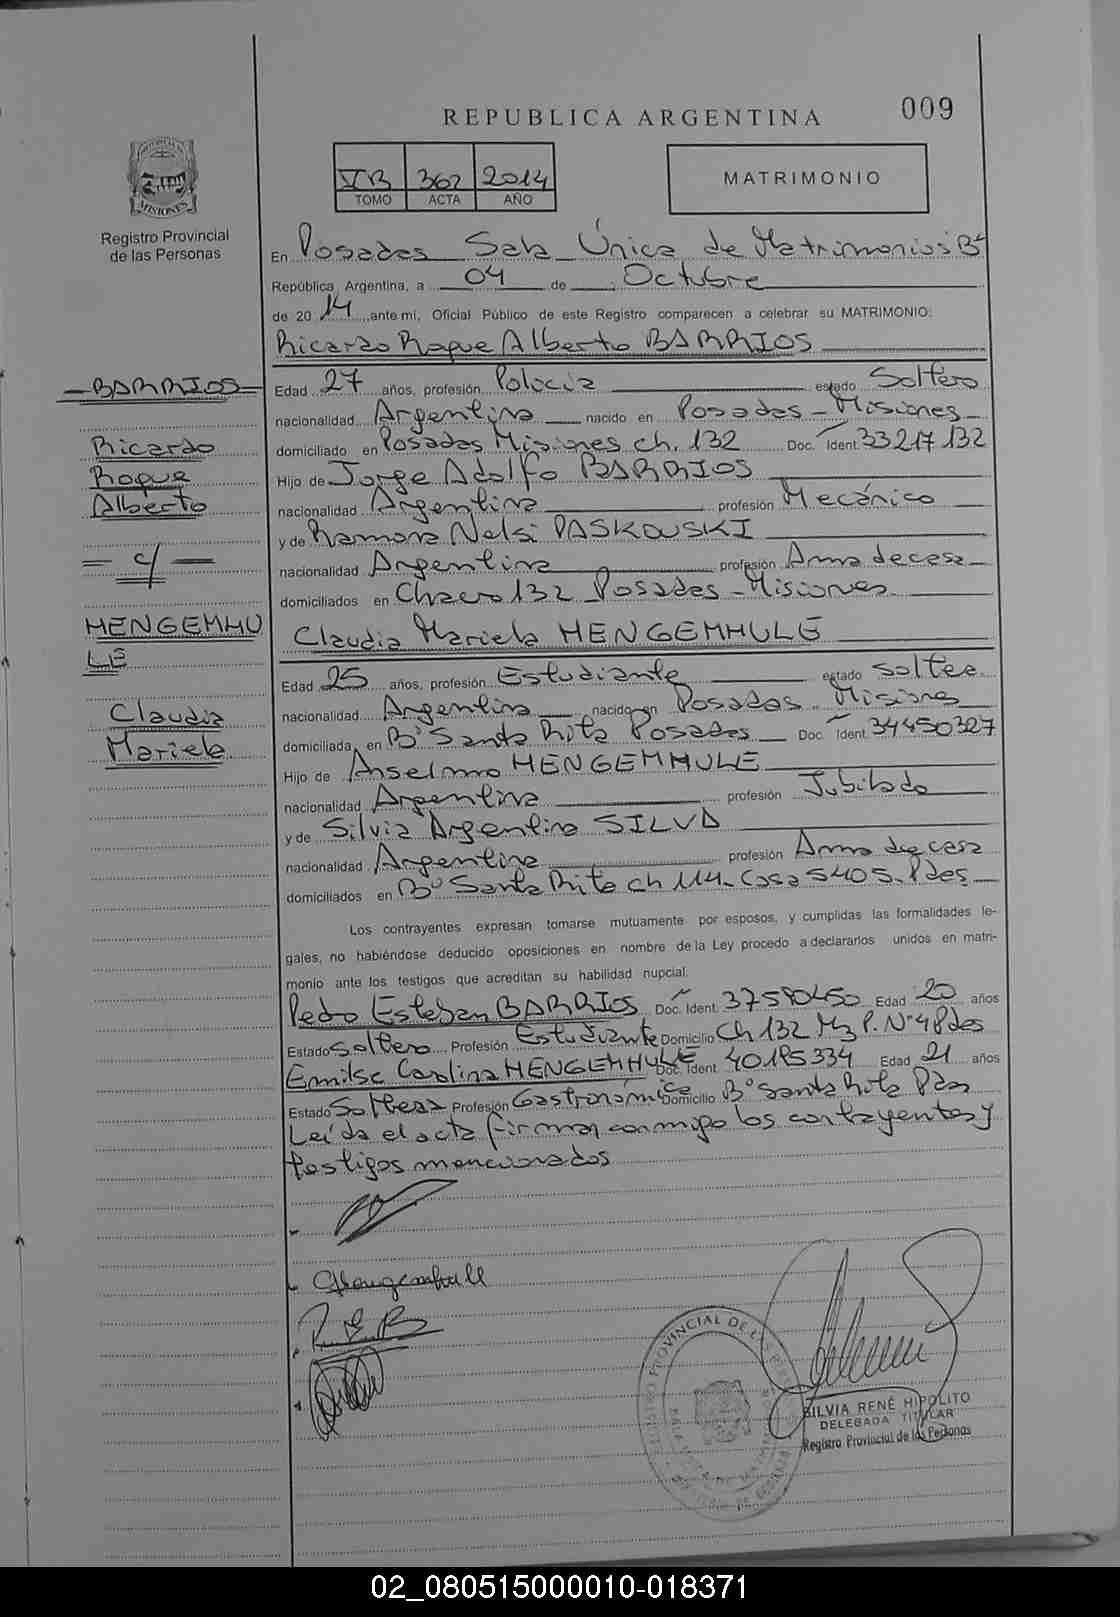 REPUBLICA ARGENTINA
009
PROVINCIA DE
MISIONES
Registro Provincial
de las Personas
IB 362 2014
TOMO ACTA AÑO
MATRIMONIO
En Posadas Sala Única de Matrimonios
República Argentina, a 04 de Octubre
de 2014, ante mí, Oficial Público de este Registro comparecen a celebrar su MATRIMONIO:
Ricardo Roque Alberto BARRIOS
BARRIOS
Ricardo
Roque
Alberto
c/
HENGEMHU
LE
Claudia
Mariela
Edad 27 años, profesión Policía estado Soltero
nacionalidad Argentina nacido en Posadas - Misiones
domiciliado en Posadas Misiones ch. 132 Doc. Ident. 33217132
Hijo de Jorge Adolfo BARRIOS
nacionalidad Argentina profesión Mecánico
y de Ramona Nelsi PASKOUSKI
nacionalidad Argentina profesión Ama de casa
domiciliados en Chacra 132 Posadas - Misiones
Claudia Mariela HENGEMHULE
Edad 25 años, profesión Estudiante estado soltera
nacionalidad Argentina nacido en Posadas - Misiones
domiciliada en Bº Santa Rita Posadas Doc. Ident. 34450327
Hijo de Anselmo HENGEMHULE
nacionalidad Argentina profesión Jubilado
y de Silvia Argentina SILVA
nacionalidad Argentina profesión Ama de casa
domiciliados en Bº Santa Rita ch 114 - Casa 5405 - Pdes
Los contrayentes expresan tomarse mutuamente por esposos, y cumplidas las formalidades le-
gales, no habiéndose deducido oposiciones en nombre de la Ley procedo a declararlos unidos en matri-
monio ante los testigos que acreditan su habilidad nupcial.
Pedro Esteban BARRIOS Doc. Ident. 37590450 Edad 20 años
Estado Soltero Profesión Estudiante Domicilio Ch 132 Mz P. Nº 4 Pdes
Emilse Carolina HENGEMHULE Doc. Ident. 40195334 Edad 21 años
Estado Soltera Profesión Gastronómica Domicilio Bº Santa Rita Pdas
Leída el acta firman conmigo los contrayentes y
testigos mencionados
P.E.B
SILVIA RENÉ HIPOLITO
DELEGADA TITULAR
Registro Provincial de las Personas
02_080515000010-018371